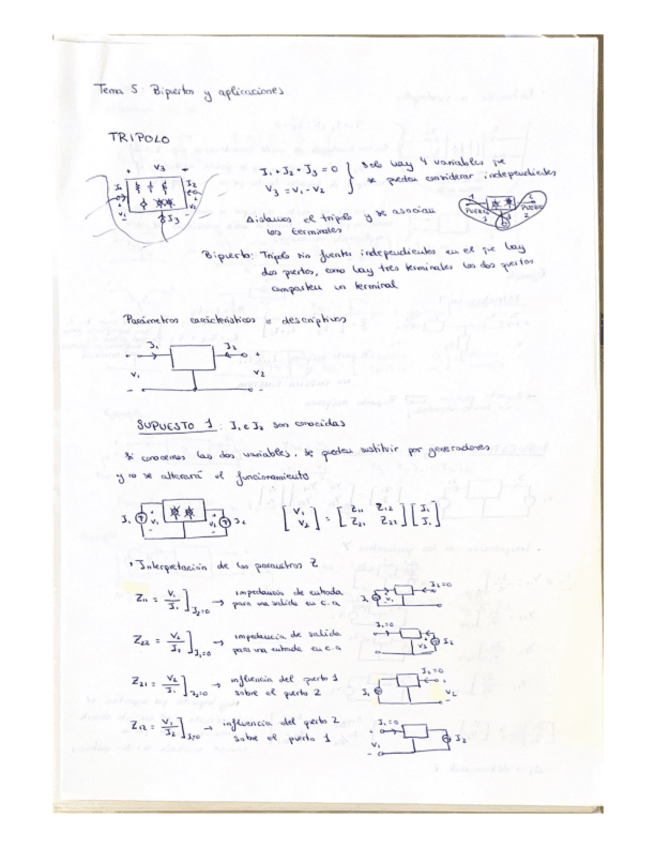 Tema 5: Bipuertos y aplicaciones
TRIPOLO
+ V3 -
J1 J2
+ V1 - + V2 -
J3
J1 + J2 + J3 = 0
V3 = V1 - V2
Solo hay 4 variables que
se pueden considerar independientes
Aislamos el tripolo y se asocian
los terminales
PUERTO 1
PUERTO 2
Bipuerto: Tripolo sin fuentes independientes en el que hay
dos puertos, como hay tres terminales los dos puertos
comparten un terminal
Parámetros característicos o descriptivos
+ J1 J2 +
V1 V2
- -
SUPUESTO 1: J1 e J2 son conocidas
Si conocemos las dos variables, se pueden sustituir por generadores
y no se alterará el funcionamiento
J1 + V1 - + V2 - J2
[V1 V2] = [Z11 Z12 Z21 Z22] [J1 J1]
Interpretación de los parametros Z
Z11 = V1/J1 ]J2=0 → impedancia de entrada
para una salida en c.a
J2=0
J1 V1
Z22 = V2/J2 ]J1=0 → impedancia de salida
para una entrada en c.a
J1=0
J2
Z21 = V2/J1 ]J2=0 → influencia del puerto 1
sobre el puerto 2
J2=0
J1 V2
Z12 = V1/J2 ]J1=0 → influencia del puerto 2
sobre el puerto 1
J1=0
+ V1 - J2